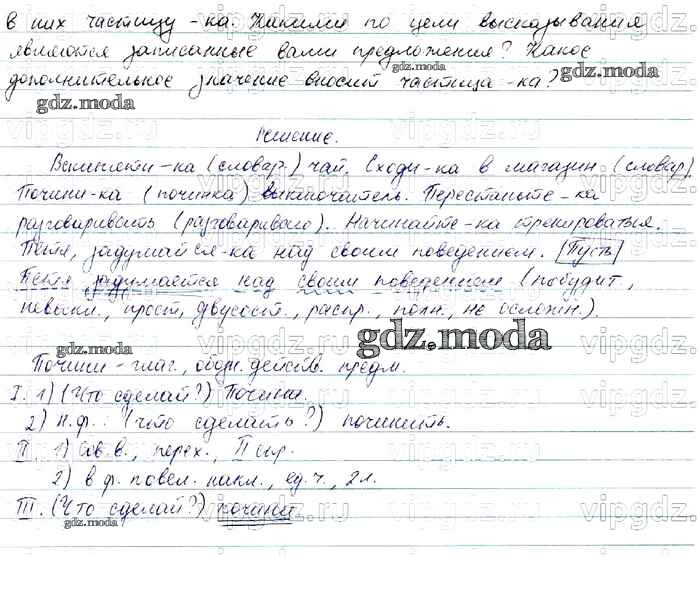 в них частицу -ка. Какими по цели высказывания
являются записанные вами предложения? Какое
дополнительное значение вносит частица -ка?
gdz.moda
gdz.moda
Решение.
Вскипяти-ка (словар.) чай. Сходи-ка в магазин (словар).
Почини-ка (починка) выключатель. Перестаньте-ка
разговаривать (разговаривала). Начинайте-ка тренироваться.
Петя, задумайся-ка над своим поведением. [Пусть]
Петя задумается над своим поведением (побудит.,
невоскл., прост, двусост., распр., полн., не осложн.).
gdz.moda
gdz.moda
Почини - глаг., обозн. действ. предм.
I. 1) (Что сделай?) Почини.
2) н.ф.: (что сделать?) починить.
II. 1) Сов.в., перех., II спр.
2) в ф. повел. накл., ед.ч., 2л.
III. (Что сделай?) почини
gdz.moda